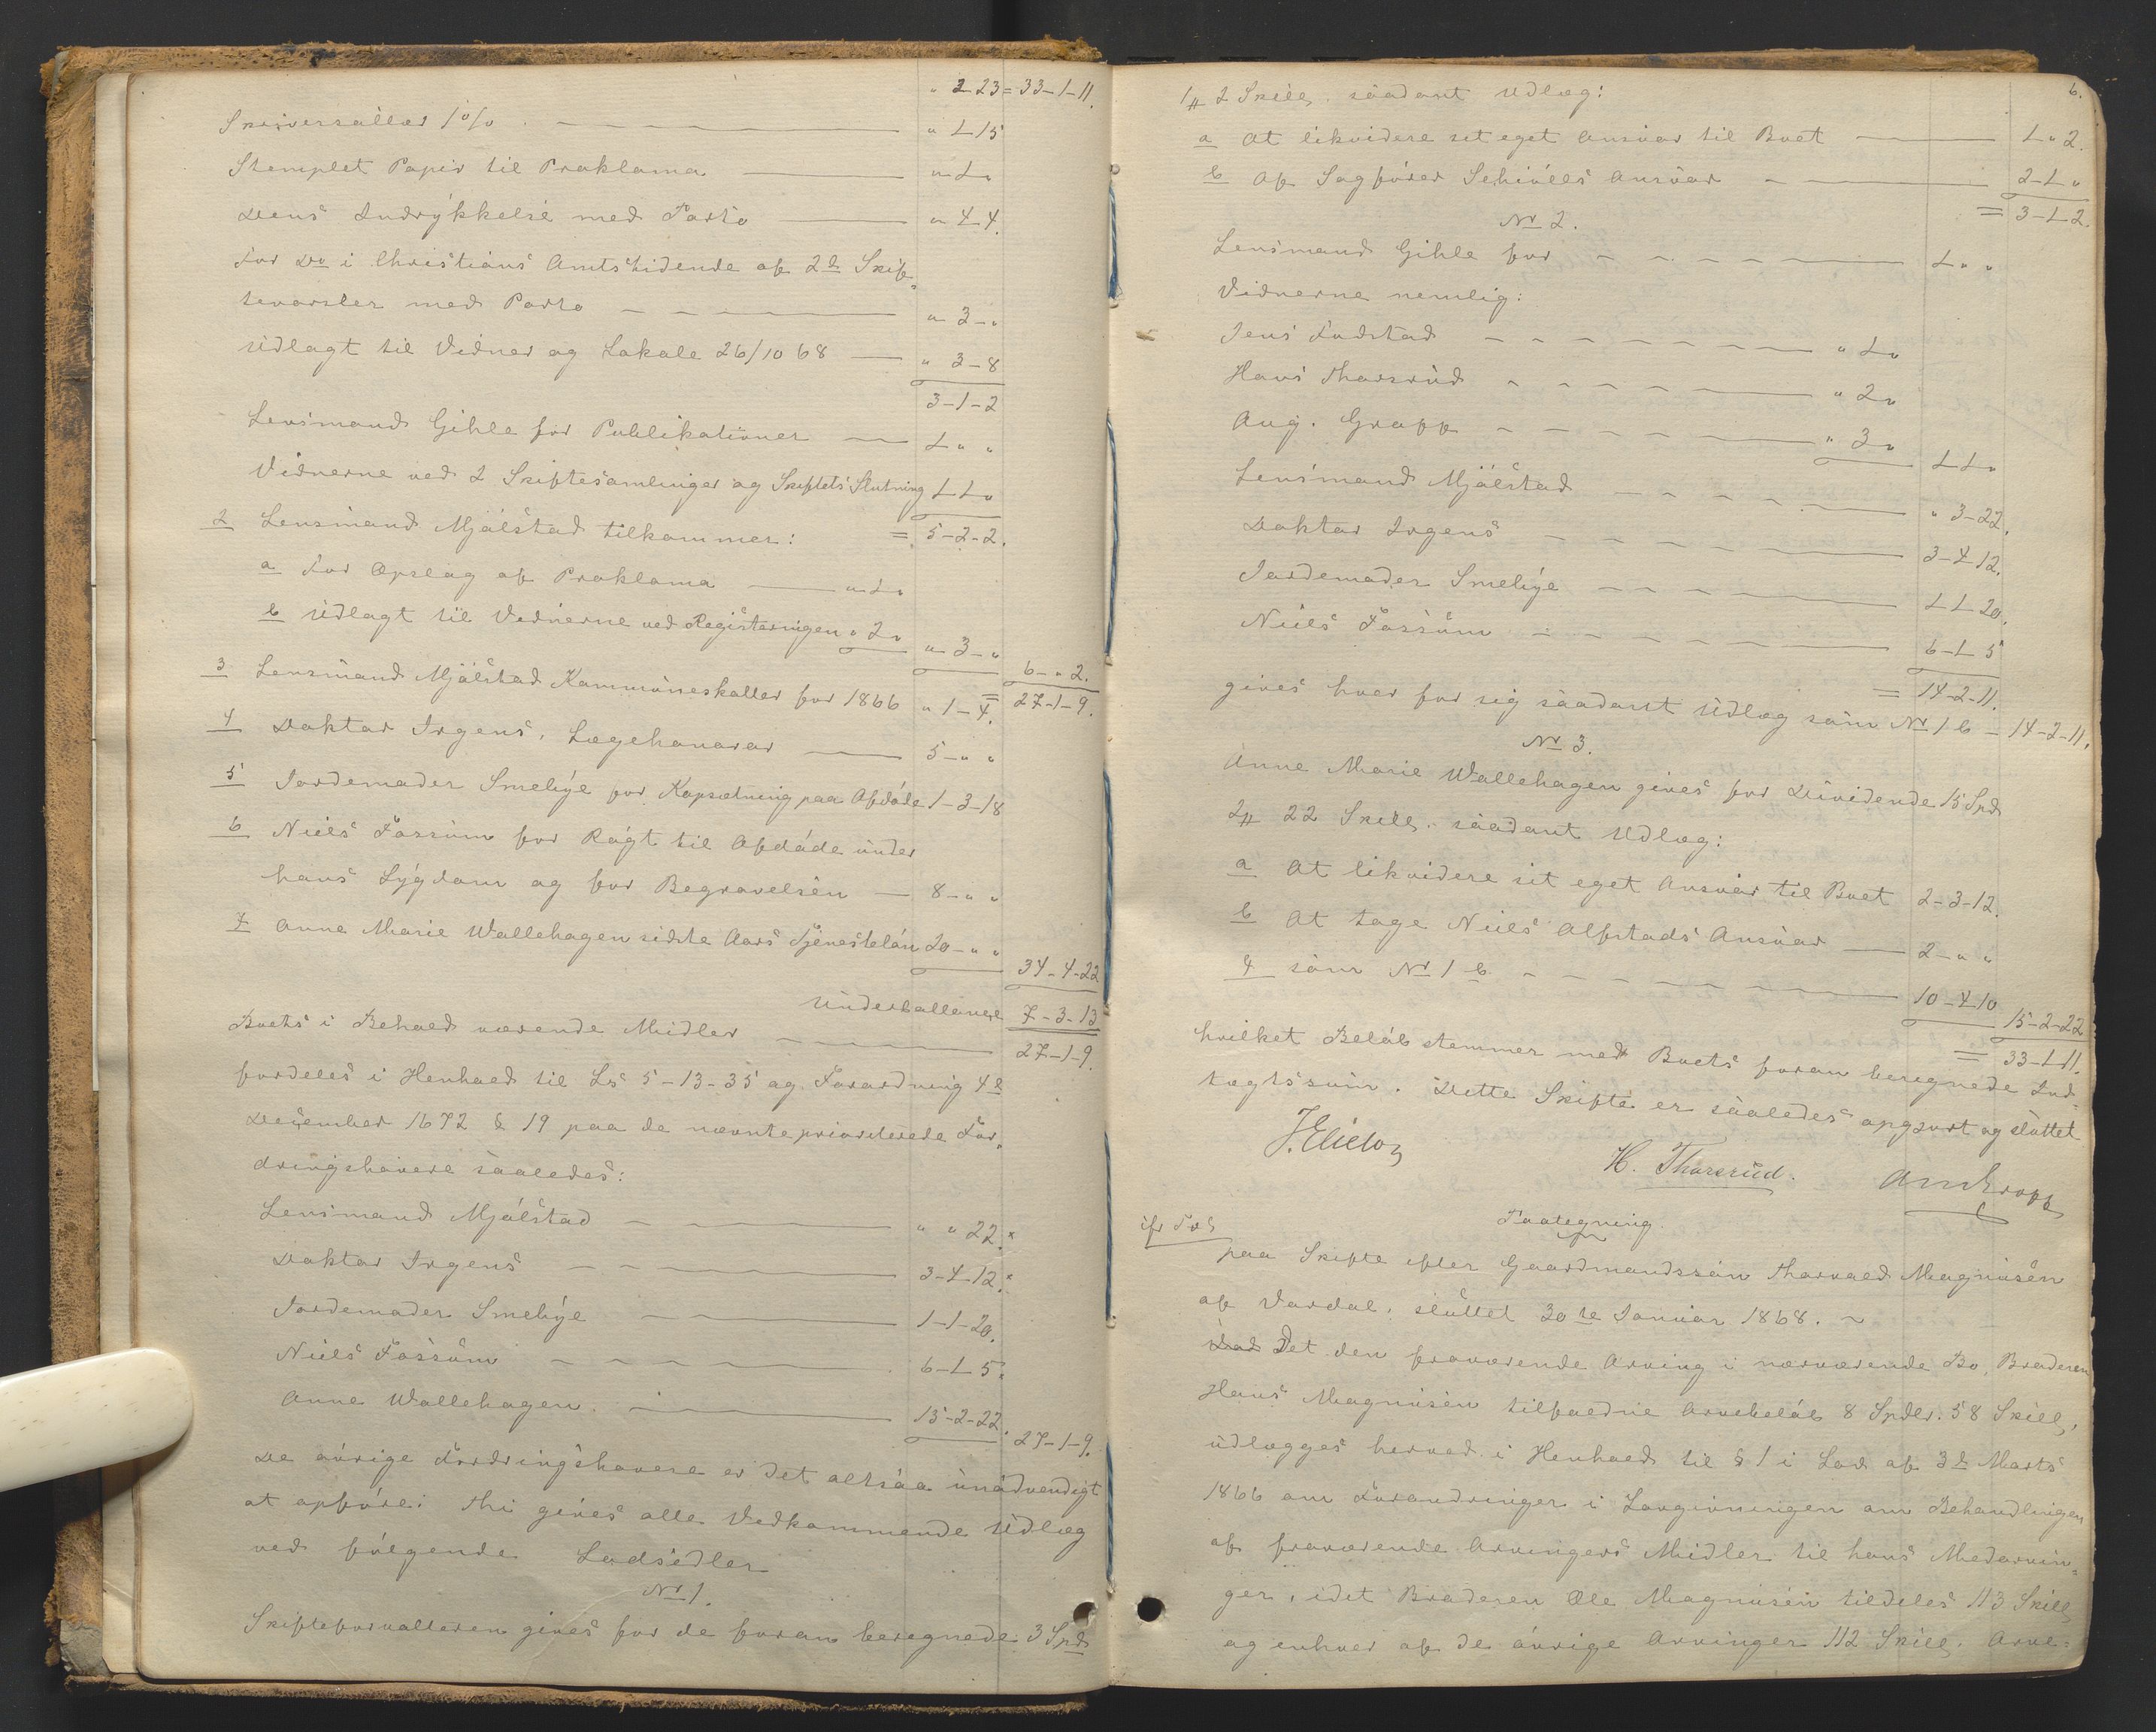 " 2-23 = 33-1-11.
Skriversallær 1% " 1-15
Stemplet Papir til Proklama " 1 "
Dens Indrykkelse med Porto " 4-4.
For Do i Christians Amtstidende af 2de Skif-
tevarsler med Porto " 3 - "
Udlagt til Vidner og Lokale 26/10 68 " 3-8
3-1-2
Lensmand Gihle for Publikationer 1 " "
Vidnerne ved 2 Skiftesamlinger og Skiftets Slutning 1-1 "
= 5-2-2.
2 Lensmand Mjølstad tilkommer:
a For Opslag af Proklama " 1 "
b Udlagt til Vidnerne ved Registeringen " 2 " " 3 - "
6 - " 2.
= 27-1-9.
3 Lensmand Mjølstad Kommuneskatter for 1866 " 1-4.
4 Doktor Irgens, Lægehonorar 5 - " "
5 Jordemoder Smebye for Kopsætning paa Afdøde 1-3-18
6 Niels Fossum for Røgt til Afdøde under
hans Sygdom og for Begravelsen 8 - " "
7 Anne Marie Wallehagen sidste Aars Tjenesteløn 20 - " "
34-4-22
Underballance 7-3-13
Boets i Behold værende Midler 27-1-9.
fordeles i Henhold til Ls 5-13-35 og Forordning 4de
December 1672 § 19 paa de nævnte prioriterede For-
dringshavere saaledes:
Lensmand Mjølstad " " 22.
Doktor Irgens 3-4-12.
Jordemoder Smebye 1-1-20.
Niels Fossum 6-1-5.
Anne Wallehagen 15-2-22. 27-1-9.
De øvrige Fordringshavere er det altsaa unødvendigt
at opføre: Thi gives alle Vedkommende Udlæg
ved følgende Lodsedler
No 1.
Skifteforvalteren gives for de foran beregnede 3 Spd
6.
1 # 2 Skill. saadant Udlæg:
a At likvidere sit eget Ansvar til Boet 1 " 2.
b Af Sagfører Schiølls Ansvar 2-1 "
= 3-1-2.
No 2.
Lensmand Gihle for 1 " "
Vidnerne nemlig:
Jens Fodstad " 1 "
Hans Thorsrud " 2 "
Aug. Gropp " 3 " 1-1 "
Lensmand Mjølstad " 3-22.
Doktor Irgens 3-4-12.
Jordemoder Smebye 1-1-20.
Niels Fossum 6-1-5
= 14-2-11.
gives hver for sig saadant Udlæg som No 1 b - 14-2-11.
No 3.
Anne Marie Wallehagen gives for Dividende 15 Spd
2 # 22 Skill. saadant Udlæg:
a At likvidere sit eget Ansvar til Boet 2-3-12.
b At tage Niels Alfstads Ansvar 2 - " "
4 som No 1 b 10-4-10
15-2-22
= 33-1-11.
hvilket Beløb stemmer med Boets foran beregnede Ind-
tægtssum. Dette Skifte er saaledes opgjort og sluttet
H. Thorsrud.
Paategning
paa Skifte efter Gaardmandssøn Thorvald Magnusen
af Vardal, sluttet 30te Januar 1868.
Det den fraværende Arving i nærværende Bo, Broderen
Hans Magnusen tilfaldne Arvebeløb 8 Spdlr. 58 Skill,
udlægges herved i Henhold til § 1 i Lov af 3de Marts
1866 om Forandringer i Lovgivningen om Behandlingen
af fraværende Arvingers Midler til hans Medarvin-
ger, idet Broderen Ole Magnusen tildeles 113 Skill
og enhver af de øvrige Arvinger 112 Skill. Arve-